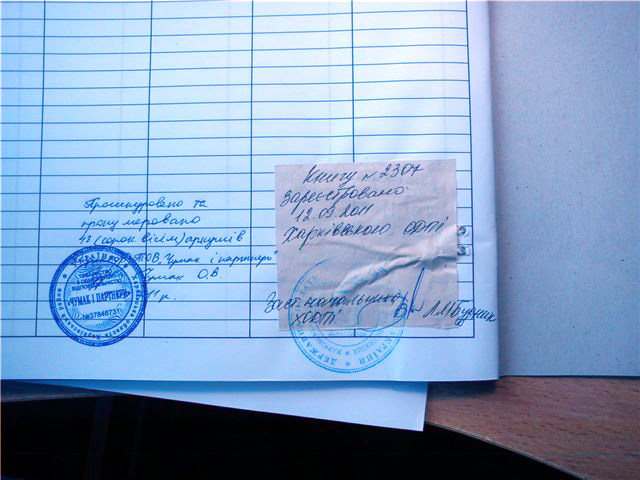 Прошнуровано та
прону меровано
48 (сорок вісім) аркушів
ТОВ "Чумак і партнери"
Чумак О.В.
2011 р.
"ЧУМАК І ПАРТНЕРИ"
№37848731
Книгу № 2307
Зареєстровано
12.09.2011
Харківського ОДПІ
Заст. начальника
ХОДПІ
Л.М. Будник
УКРАЇНИ * ДЕРЖАВНА